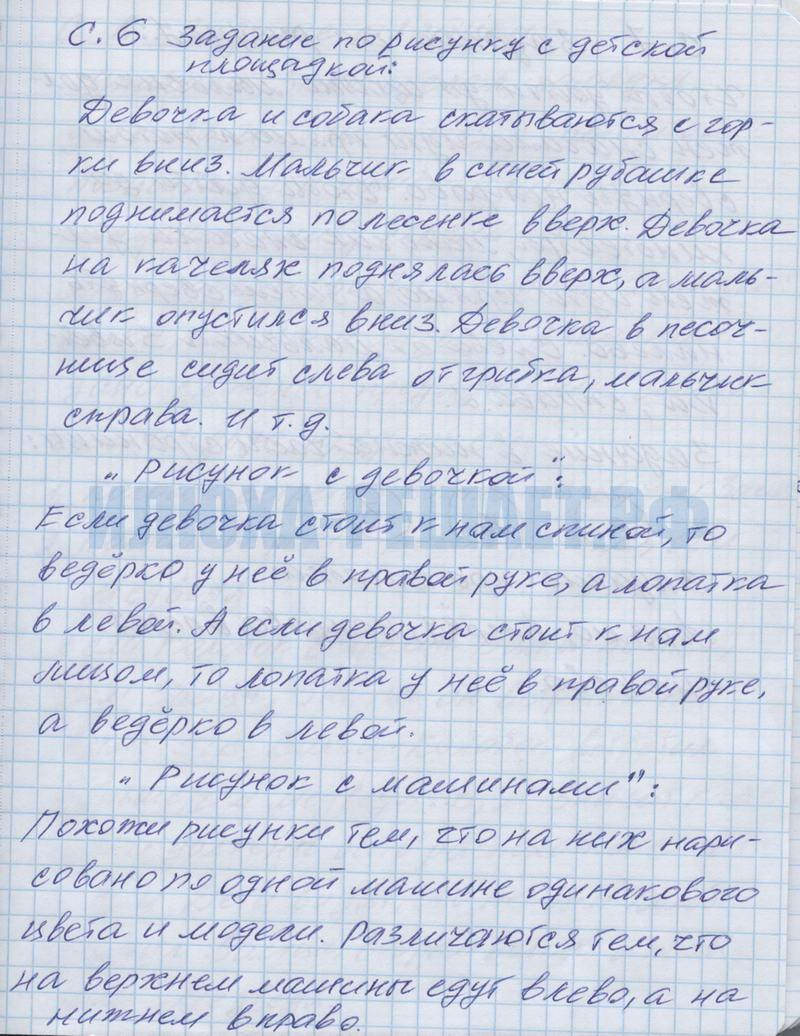 С. 6 Задание по рисунку с детской
площадкой:
Девочка и собака скатываются с гор-
ки вниз. Мальчик в синей рубашке
поднимается по лесенке вверх. Девочка
на качелях поднялась вверх, а маль-
чик опустился вниз. Девочка в песоч-
нице сидит слева от грибка, мальчик
справа. И т.д.
„Рисунок с девочкой":
ИЛЮХА-РЕШАЕТ.РФ
Если девочка стоит к нам спиной, то
ведёрко у неё в правой руке, а лопатка
в левой. А если девочка стоит к нам
лицом, то лопатка у неё в правой руке,
а ведёрко в левой.
„Рисунок с машинами":
Похожи рисунки тем, что на них нари-
совано по одной машине одинакового
цвета и модели. Различаются тем, что
на верхнем машины едут влево, а на
нижнем вправо.